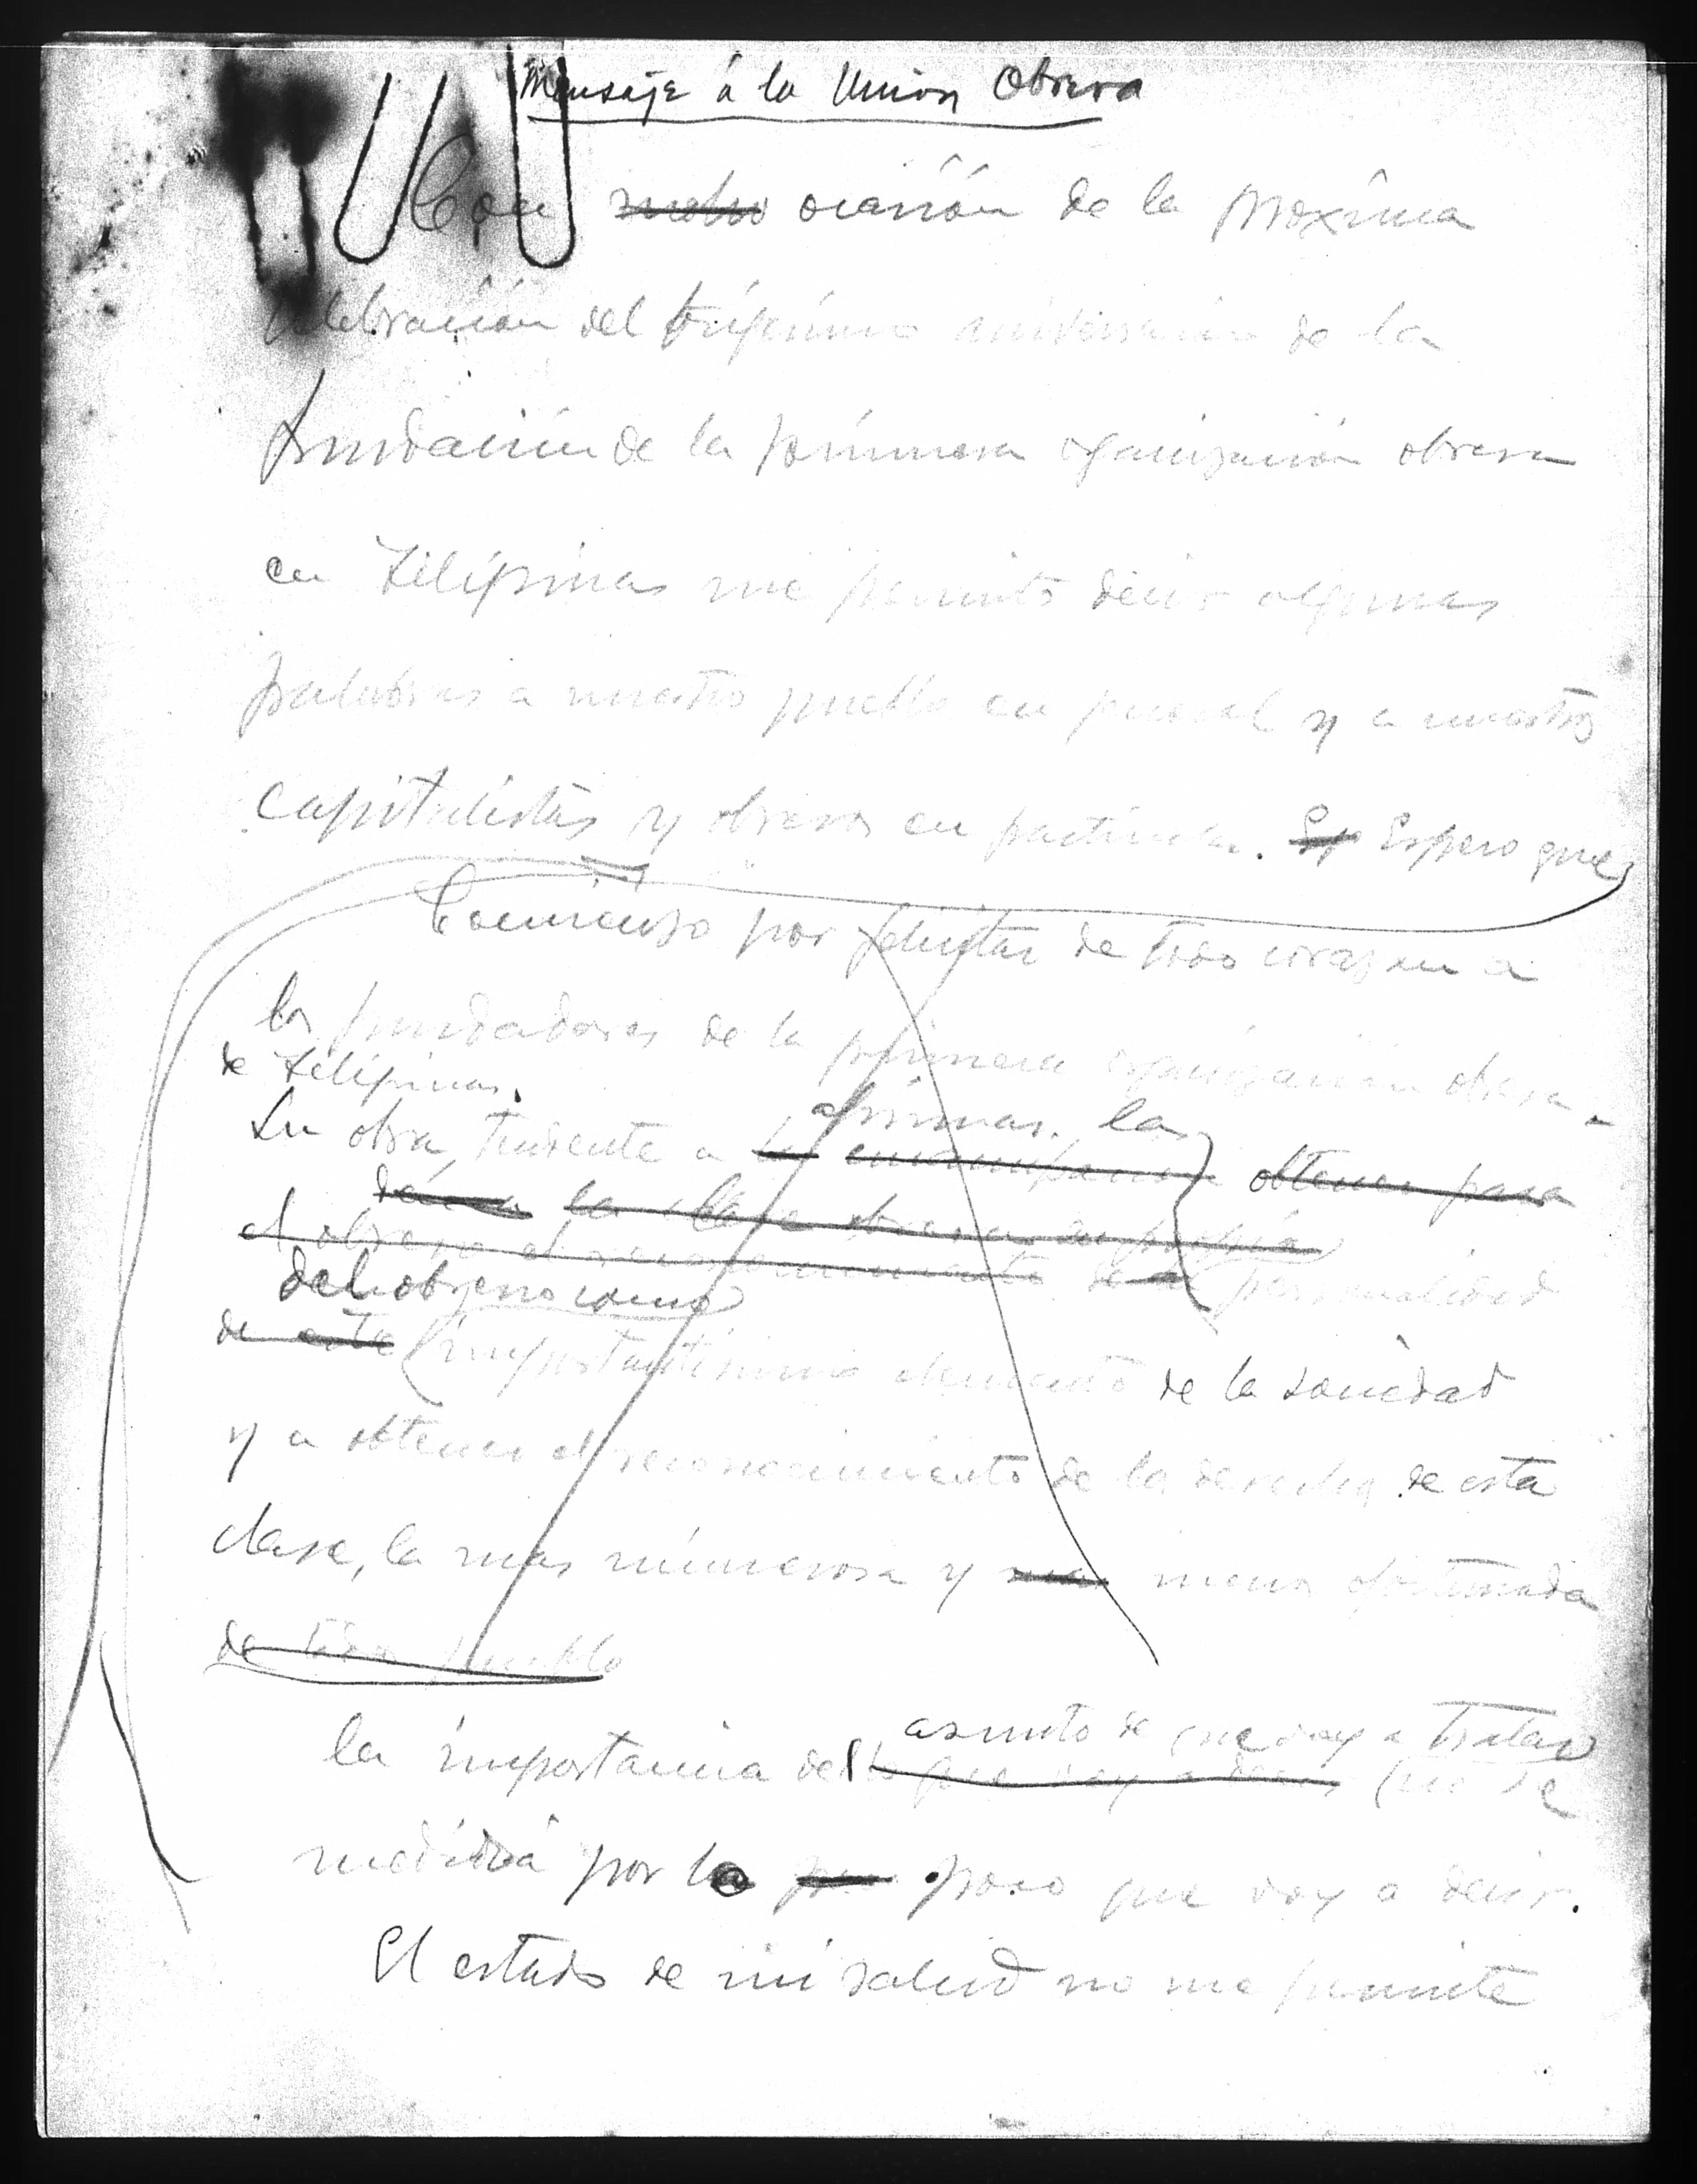 Mensaje á la Union Obrera
Con motivo ocasión de la proxima
celebración del trigesimo aniversario de la
fundación de la primera organización obrera
en Filipinas me permito decir algunas
palabras a nuestro pueblo en general y a nuestros
capitalistas y obreros en particular. Esp Espero que
Comienzo por felicitar de todo corazon a
los fundadores de la primera organización obrera
de Filipinas.
afirmar la
Su obra tendente a la emancipación obtener para
la clase obrera su propia
el obrero el reconocimiento de la personalidad
del obrero como
de este importantisimo elemento de la sociedad
y a obtener el reconocimiento de los derechos de esta
clase, la mas numerosa y mas menos afortunada
de todo pueblo
asunto de que voy a tratar
la importancia del lo que voy a decir no se
medirá por lo poco que voy a decir.
El estado de mi salud no me permite